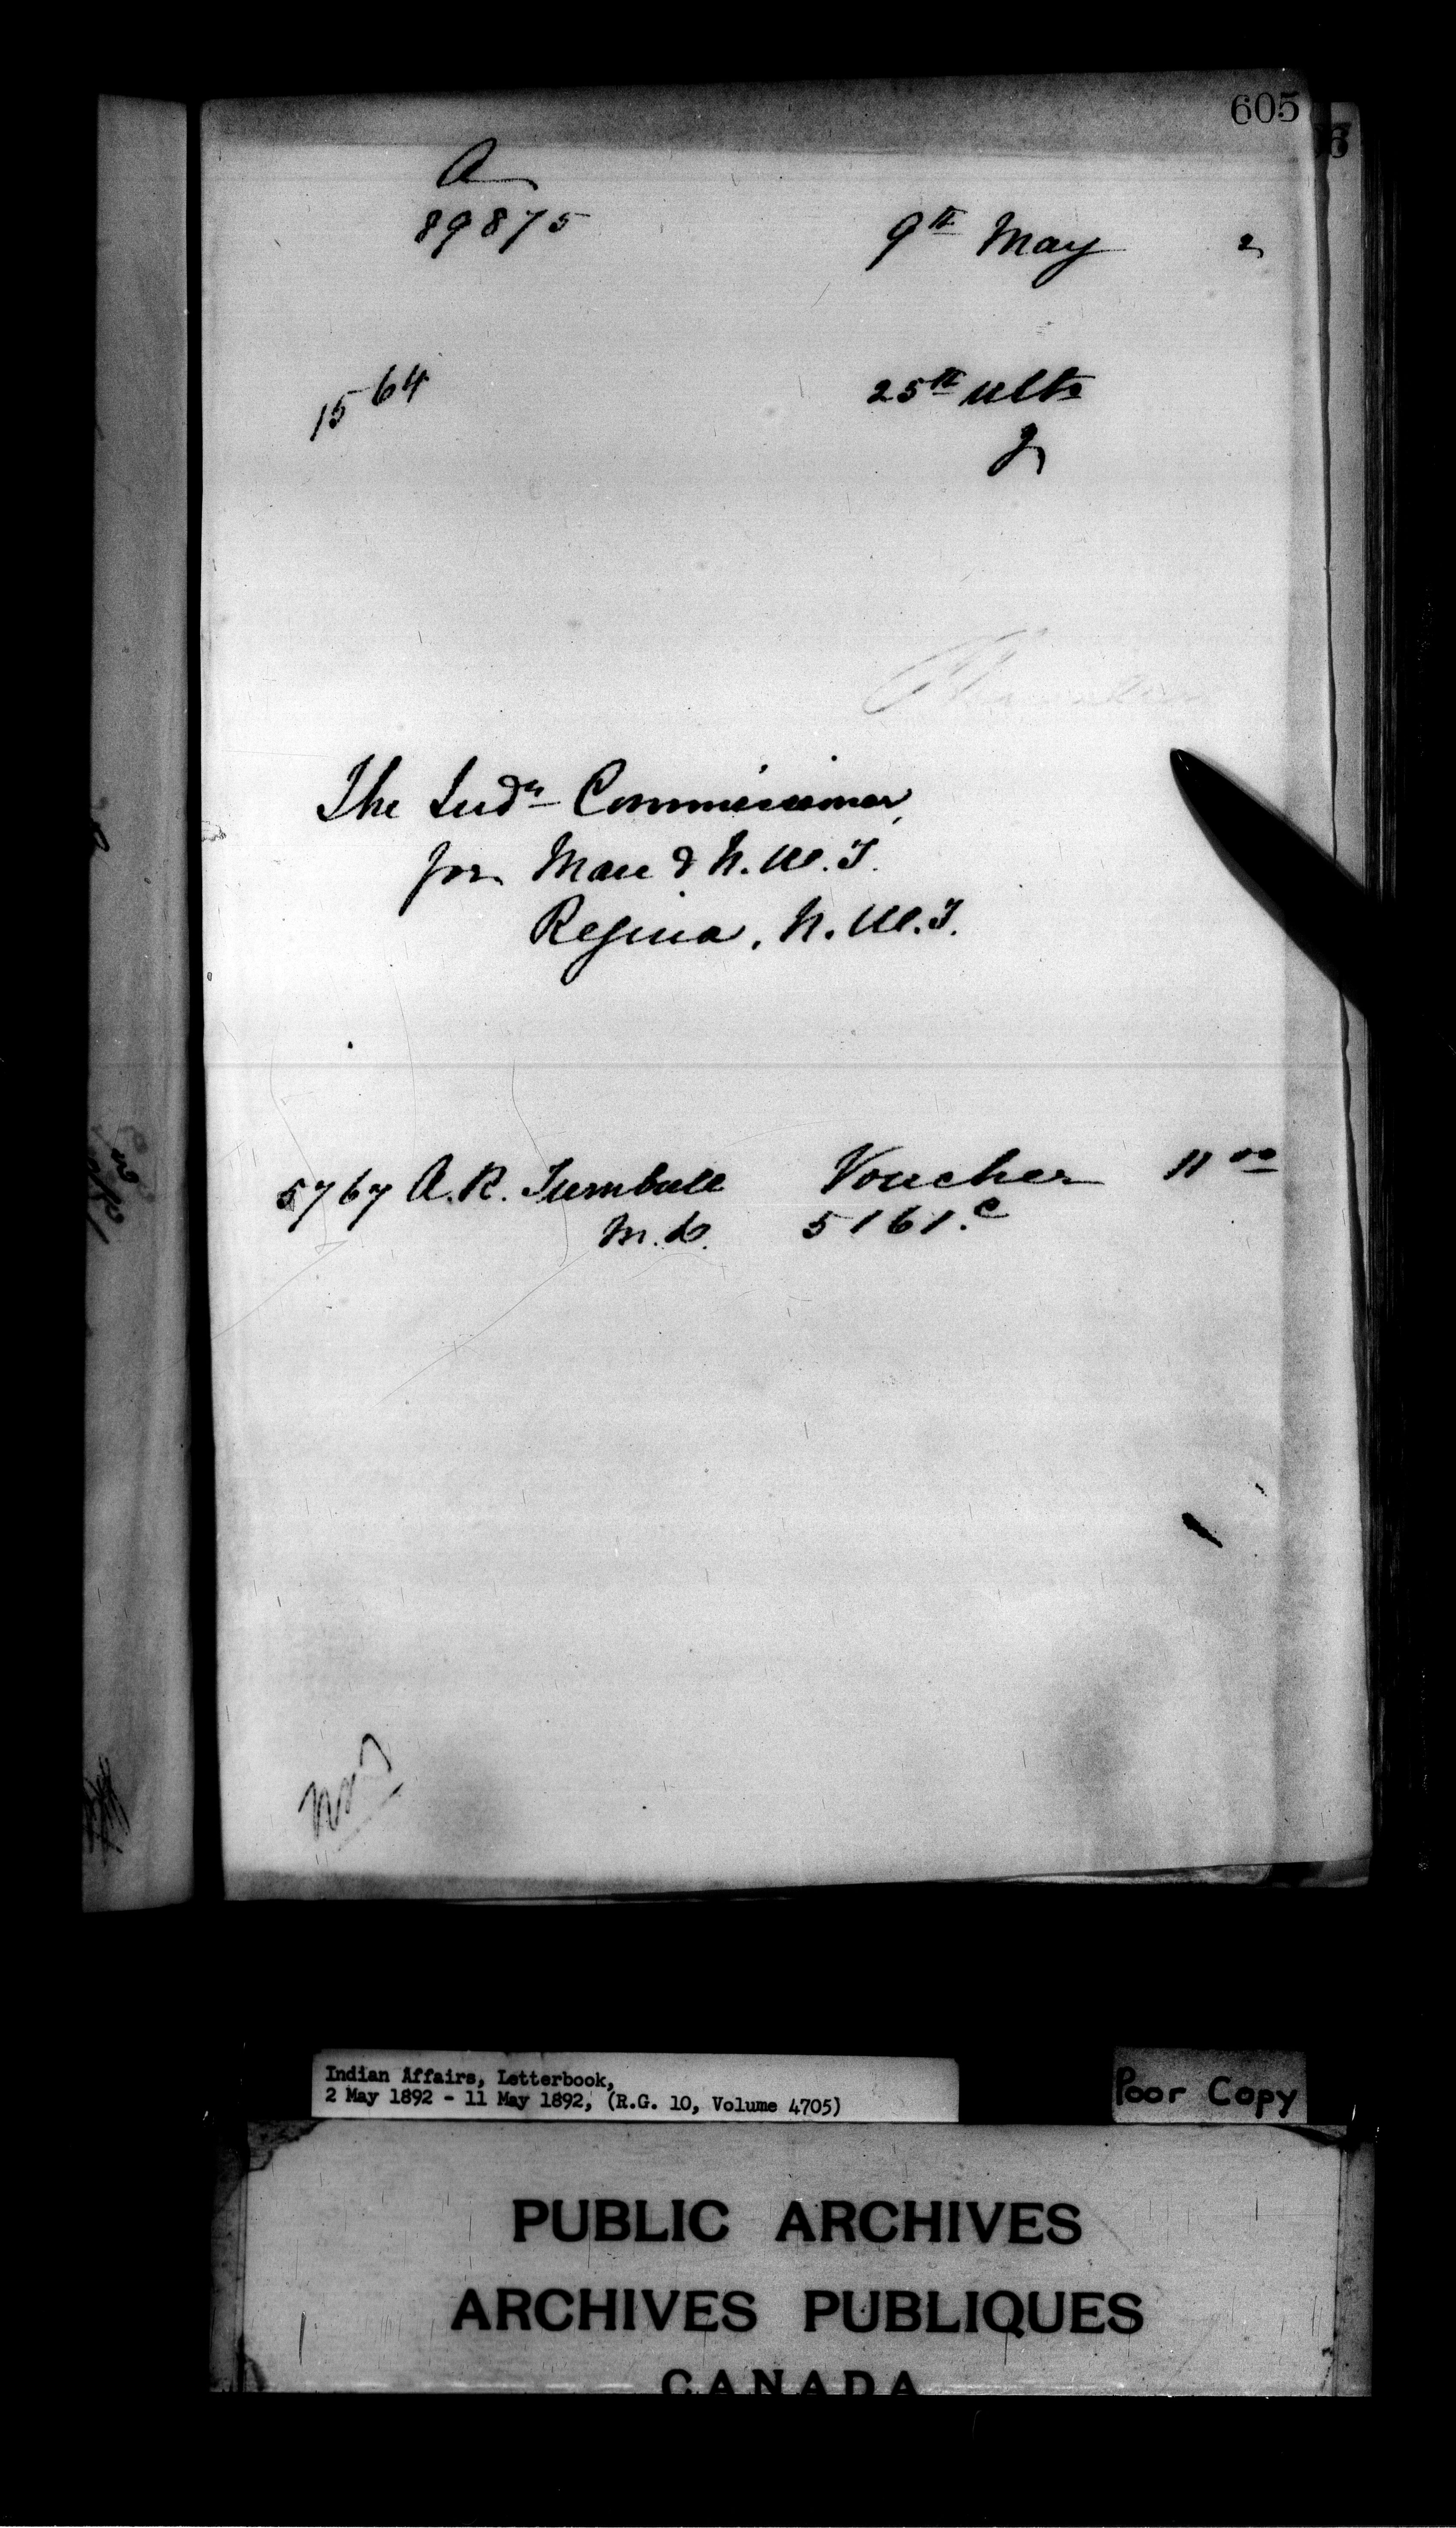 605
A
89875
9th May 2
1564
25th ulto
The Indn Commissioner,
for Man & N.W.T.
Regina, N.W.T.
5767 A.R. Turnbull Voucher 11 00
M.D. 5161.c
Indian Affairs, Letterbook,
2 May 1892 - 11 May 1892, (R.G. 10, Volume 4705)
Poor Copy
PUBLIC ARCHIVES
ARCHIVES PUBLIQUES
CANADA